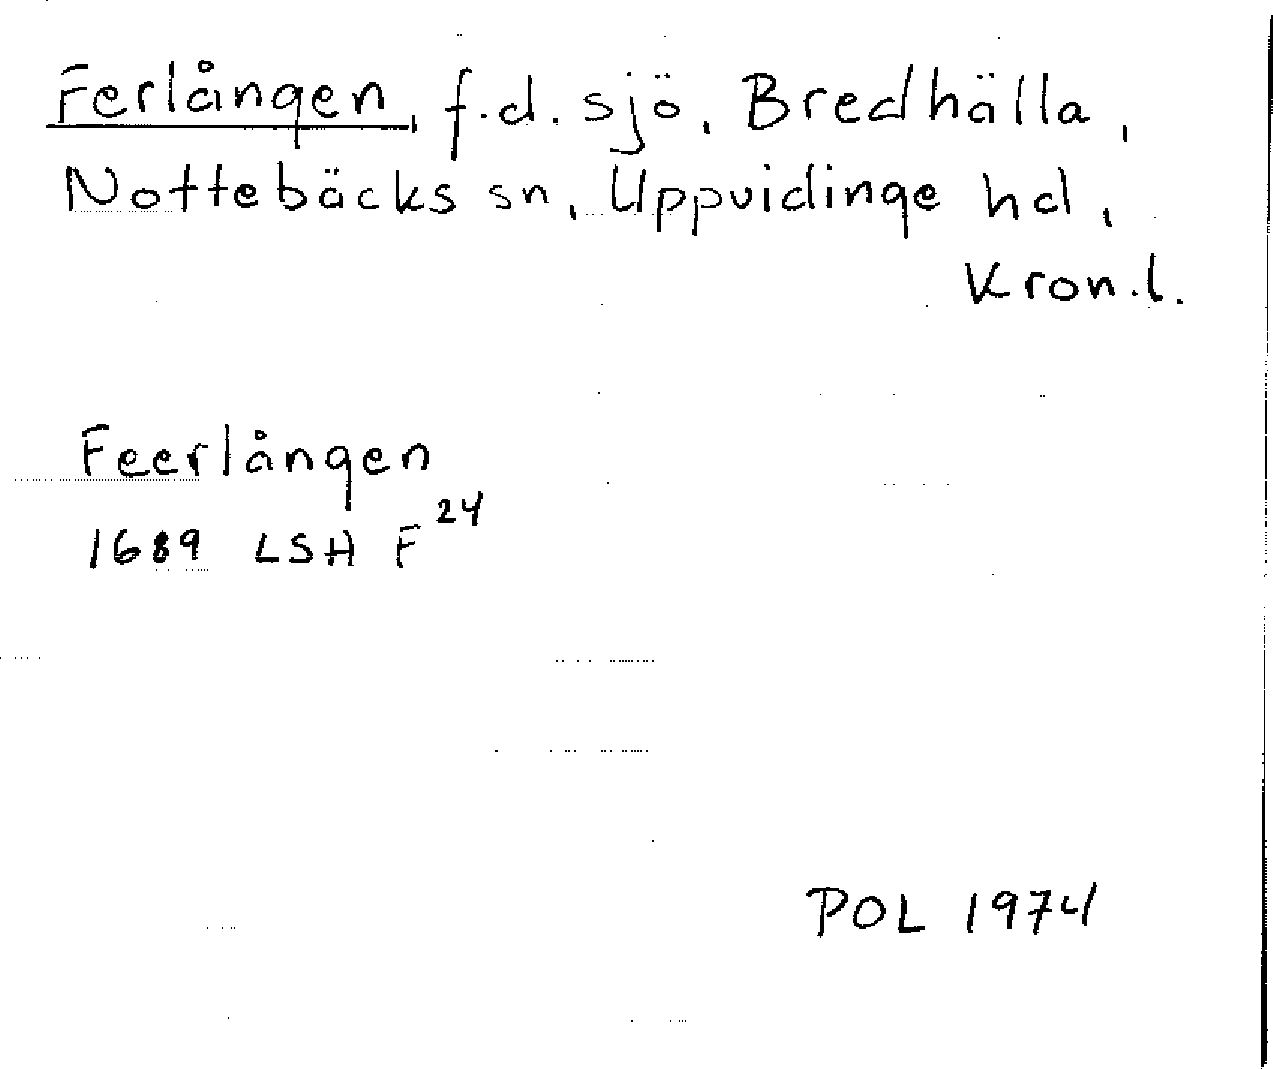 Ferlången, f.d. sjö, Bredhälla,
Nottebäcks sn, Uppvidinge hd,
Kron.l.
Feerlången
1689 LSH F 24
POL 1974